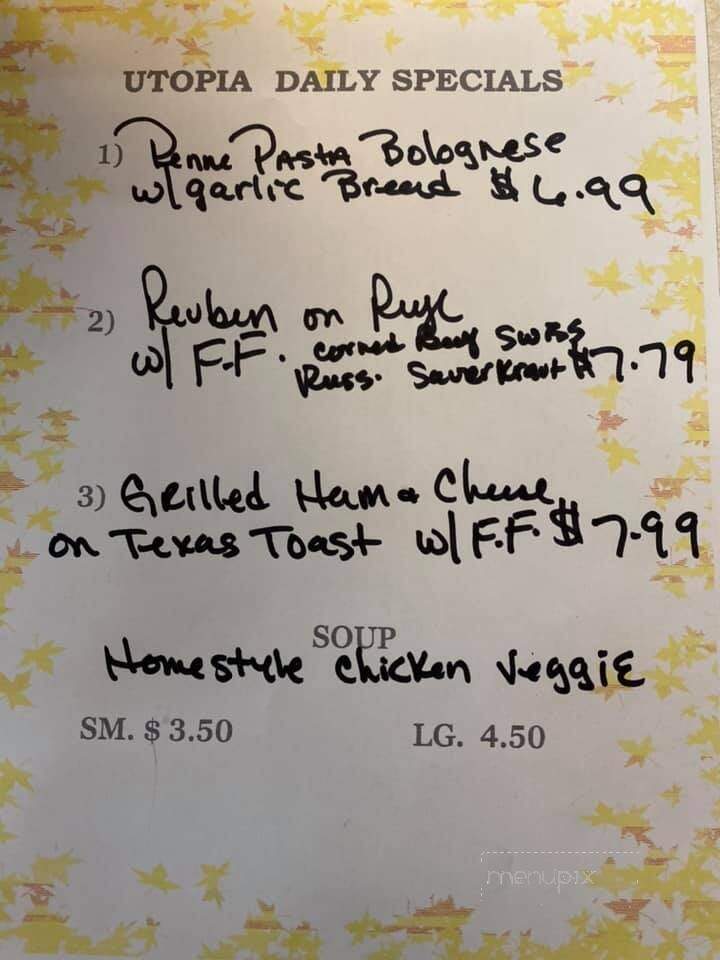 UTOPIA DAILY SPECIALS
1) Penne Pasta Bolognese
w/ garlic Bread $6.99
2) Reuben on Rye
w/ F.F. corned Beef Swiss
Russ. Sauerkraut $7.79
3) Grilled Ham & Cheese
on Texas Toast w/ F.F. $7.99
SOUP
Homestyle chicken veggie
SM. $ 3.50 LG. 4.50
menupix